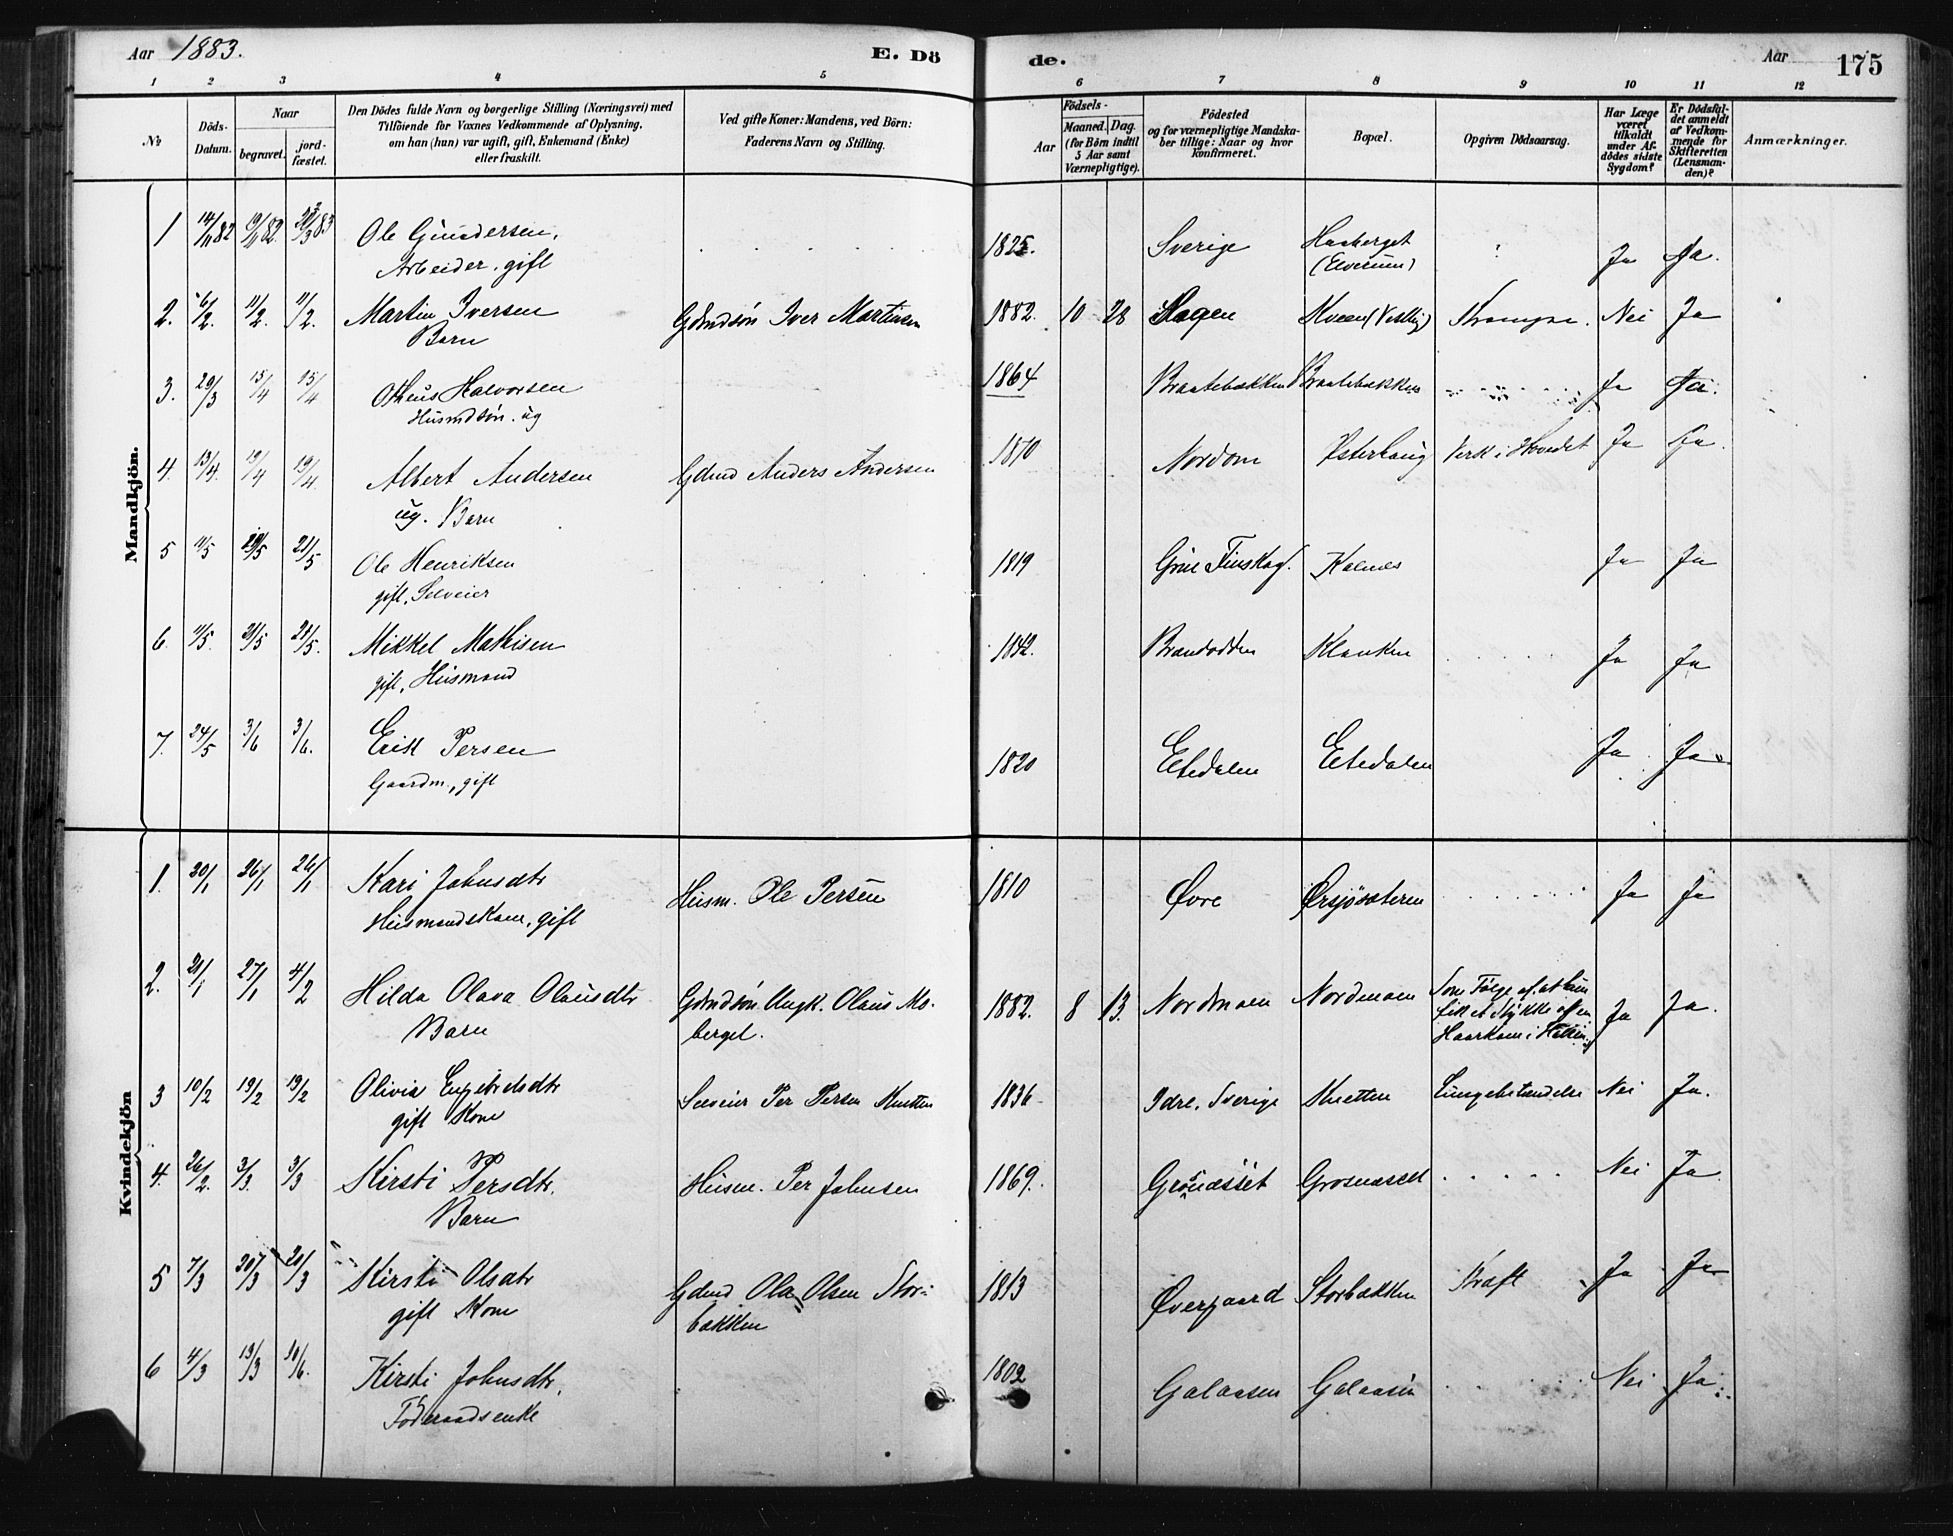 Aar 1883.
E. Dö
de.
Aar
175
1 2 3 4 5 6 7 8 9 10 11 12
No
Döds-Datum.
Naar
begravet.
jord-fæstet.
Den Dödes fulde Navn og borgerlige Stilling (Næringsvei) med
Tilföiende for Voxnes Vedkommende af Oplysning,
om han (hun) var ugift, gift, Enkemand (Enke)
eller fraskilt.
Ved gifte Koner: Mandens, ved Börn:
Faderens Navn og Stilling.
Aar
Födsels-
Maaned. Dag.
(for Börn indtil
5 Aar samt
Værnepligtige).
Födested
og for værnepligtige Mandska-
ber tillige: Naar og hvor
konfirmeret.
Bopæl.
Opgiven Dödsaarsag.
Har Læge
været
tilkaldt
under Af-
dödes sidste
Sygdom?
Er Dödsfal-
det anmeldt
af Vedkom-
mende for
Skifteretten
(Lensman-
den)?
Anmærkninger.
Mandkjön.
1 14/11 82 19/11 82 83 Ole Gundersen, 1825. Sverige Haaberget Ja Ja.
Arbeider, gift (Elverum)
2. 6/2. 11/2. 11/2. Martin Iversen Gdmdsön Iver Martinsen 1882. 10 28 Hagen Krampe. Nei Ja
Barn
3. 29/3 15/4 15/4 Otheus Halvorsen 1864 Braatebakken Braatebakken Ja Ja.
Husmdsön. ug
4. 13/4. 19/4 19/4. Albert Andersen Gdmd Anders Andersen 1870 Nordom Østerhaug Verk i Hovedet Ja Ja.
ug. Barn
5 11/5 21/5 Ole Henriksen 1819 Grue Finskog. Kalnes Ja Ja
gift, Selveier
6. 11/5. 21/5 21/5. Mikkel Mathisen 1842. Brandodden Klanken Ja Ja
gift, Husmand
7. 24/5 3/6 3/6. Erik Persen 1820 Etedalen Etedalen Ja Ja
Gaardm., gift
Kvindekjön
1. 20/1 26/1 26/1 Kari Johnsdtr Husm. Ole Persen 1810 Øvre Ørsjösæteren Ja Ja
Husmandskone, gift
2. 21/1 27/1 4/2 Hilda Olava Olausdtr Gdmdsön Ungk. Olaus Mo- 1882. 8 13. Nordmoen Nordmoen Som Følge af at hun
Barn berget. fik et Stykke af en Ja Ja.
Haarkam i Halsen
3 10/2 19/2 19/2 Olivia Engebretsdtr Selveier Per Persen Knetten 1836 Idre, Sverige Knetten Lungebetændelse Nei Ja.
gift Kone
4. 26/2. 3/3. 3/3 Kirsti Persdtr. Husm. Per Johnsen 1869. Grönæsset Grosnæsset Nei Ja
Barn
5 7/3 20/3 20/3 Kirsti Olsdtr Gdmd Ola Olsen Stor- 1813 Øvergaard Storbakken Kræft Ja Ja
gift Kone bakken
6 4/3 13/3 10/6. Kirsti Johnsdtr, 1802 Galaasen Galaasen Nei Ja
Föderaadsenke